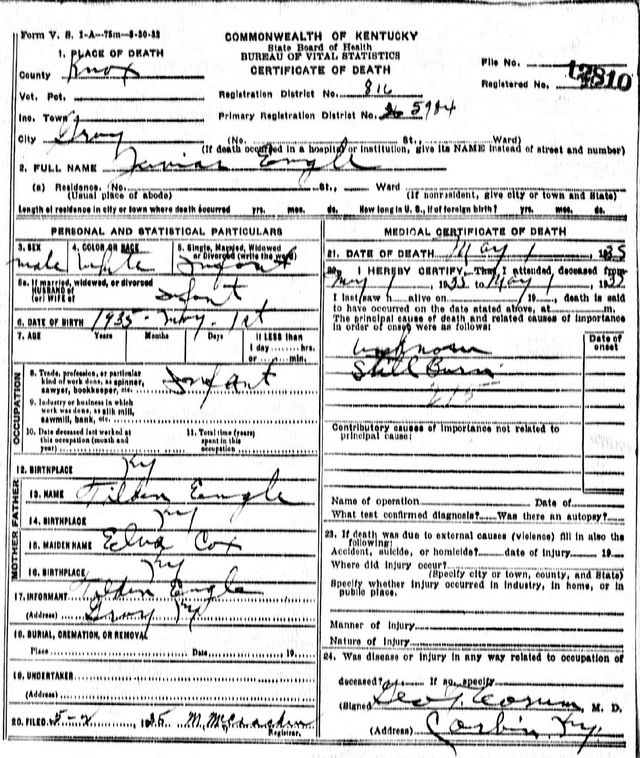 Form V. S. 1-A--75m--8-30-32
COMMONWEALTH OF KENTUCKY
State Board of Health
BUREAU OF VITAL STATISTICS
CERTIFICATE OF DEATH
1. PLACE OF DEATH
County Knox
File No.
12810
Registered No.
Vot. Pct.
Registration District No. 816
Inc. Town
Primary Registration District No. 5984
City Gray (No. St., Ward)
(If death occurred in a hospital or institution, give its NAME instead of street and number)
2. FULL NAME Engle
(a) Residence, No. St., Ward
(Usual place of abode) (If nonresident, give city or town and State)
Length of residence in city or town where death occurred yrs. mos. ds. How long in U. S., if of foreign birth? yrs. mos. ds.
PERSONAL AND STATISTICAL PARTICULARS
3. SEX 4. COLOR OR RACE 5. Single, Married, Widowed
or Divorced (write the word)
male White Infant
5a. If married, widowed, or divorced
HUSBAND of
(or) WIFE of Infant
6. DATE OF BIRTH 1935 - May - 1st
7. AGE Years Months Days If LESS than
1 day hrs.
or min.
OCCUPATION
8. Trade, profession, or particular
kind of work done, as spinner,
sawyer, bookkeeper, etc. Infant
9. Industry or business in which
work was done, as silk mill,
sawmill, bank, etc.
10. Date deceased last worked at
this occupation (month and
year)
11. Total time (years)
spent in this
occupation
12. BIRTHPLACE Ky
FATHER
13. NAME Tilden Engle
14. BIRTHPLACE Ky
MOTHER
15. MAIDEN NAME Edna Cox
16. BIRTHPLACE Ky
17. INFORMANT Tilden Engle
(Address) Gray Ky
18. BURIAL, CREMATION, OR REMOVAL
Place Date 19
19. UNDERTAKER
(Address)
20. FILED 5-2 1935 M. McCracken
Registrar.
MEDICAL CERTIFICATE OF DEATH
21. DATE OF DEATH May 1 1935
22. I HEREBY CERTIFY, That I attended, deceased from
May 1, 1935 to May 1, 1935
I last saw h alive on 19 death is said
to have occurred on the date stated above, at m.
The principal cause of death and related causes of importance
in order of onset were as follows:
Date of
onset
Unknown
Still Born
215
Contributory causes of importance not related to
principal cause:
Name of operation Date of
What test confirmed diagnosis? Was there an autopsy?
23. If death was due to external causes (violence) fill in also the
following:
Accident, suicide, or homicide? date of injury 19
Where did injury occur?
(Specify city or town, county, and State)
Specify whether injury occurred in industry, in home, or in
public place.
Manner of injury
Nature of injury
24. Was disease or injury in any way related to occupation of
deceased? If so, specify
(Signed Geo. T. Corum, M. D.
(Address) Corbin, Ky.